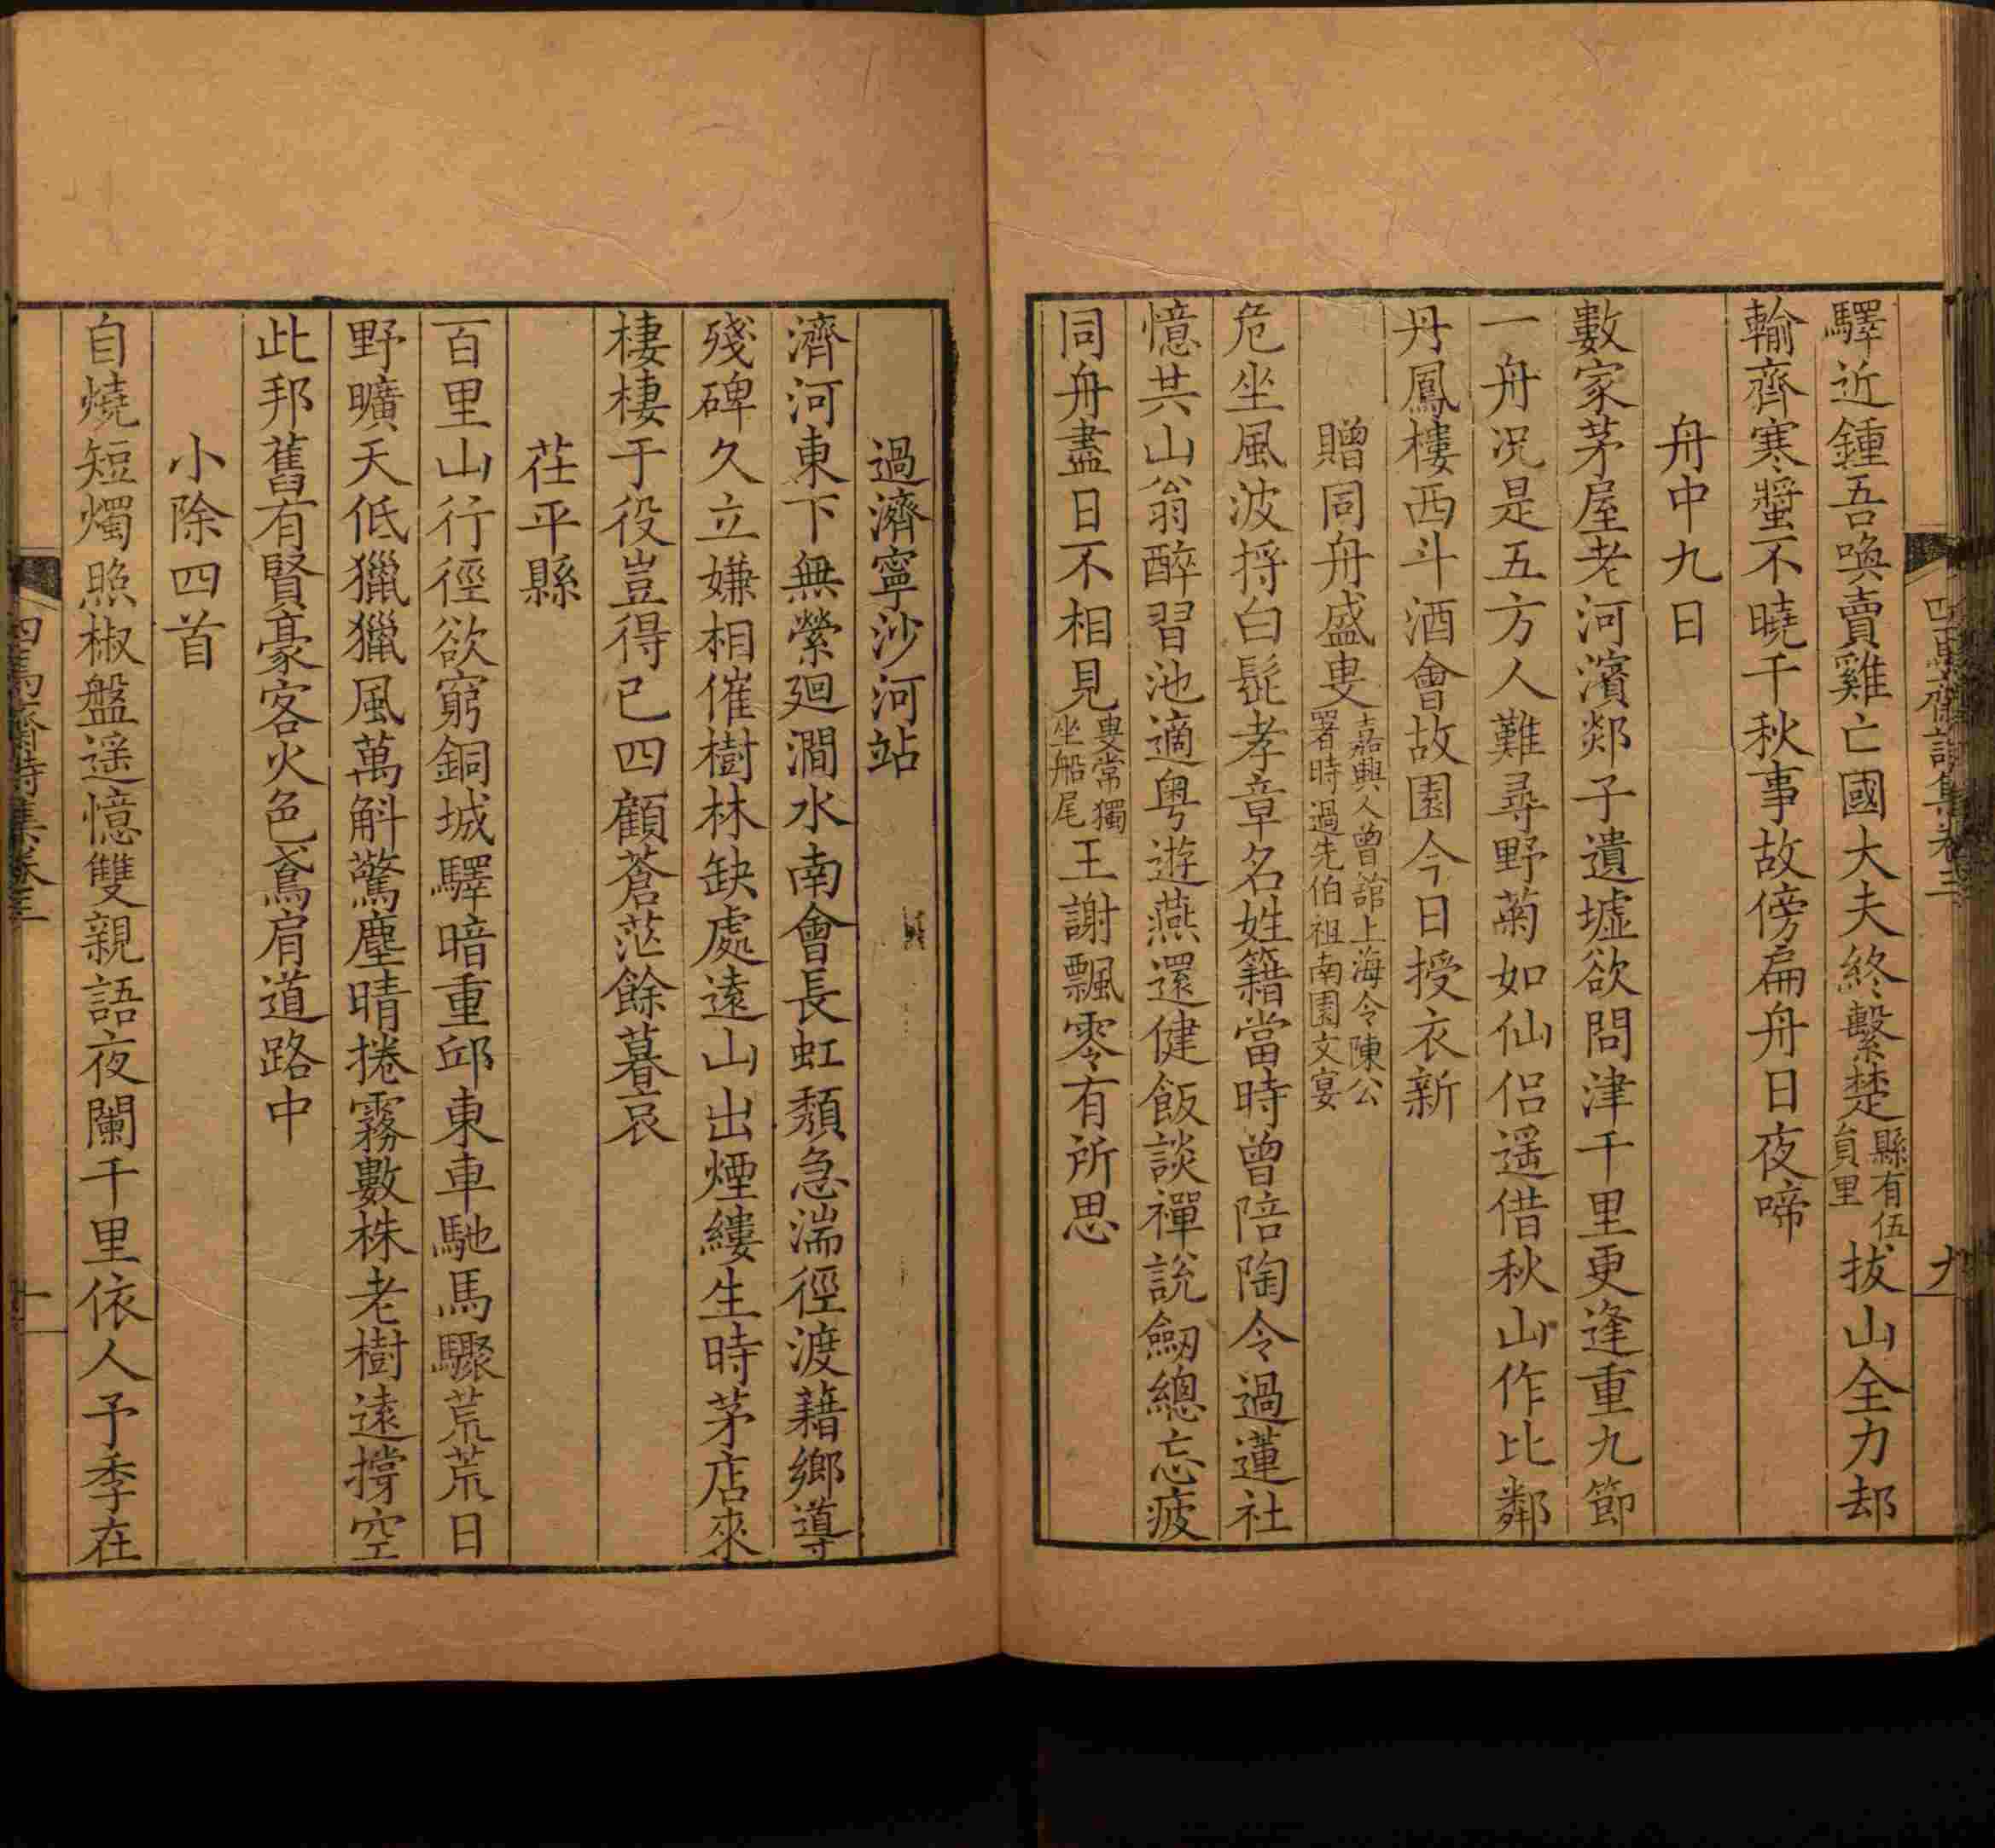 驛近鍾吾喚賣雞亡國大夫終繫楚縣有伍員里拔山全力却
輸齊寒螿不曉千秋事故傍扁舟日夜啼
舟中九日
數家茅屋老河濱郯子遺墟欲問津千里更逢重九節
一舟况是五方人難尋野菊如仙侣遥借秋山作比鄰
丹鳳樓西斗酒會故園今日授衣新
贈同舟盛叟嘉興人曾館上海令陳公署時過先伯祖南園文宴
危坐風波捋白髭孝章名姓籍當時曾陪陶令過蓮社
憶共山翁醉習池適粤遊燕還健飯談禪說劒總忘疲
同舟盡日不相見叟常獨坐船尾王謝飄零有所思
過濟寧沙河站
濟河東下無縈廻澗水南會長虹頹急湍徑渡藉鄉導
殘碑久立嫌相催樹林缺處遠山出煙縷生時茅店來
棲棲于役豈得已四顧蒼茫餘暮哀
茌平縣
百里山行徑欲窮銅城驛暗重邱東車馳馬驟荒荒日
野曠天低獵獵風萬斛驚塵晴捲霧數株老樹遠撐空
此邦舊有賢豪客火色鳶肩道路中
小除四首
自燒短燭照椒盤遥憶雙親語夜闌千里依人予季在